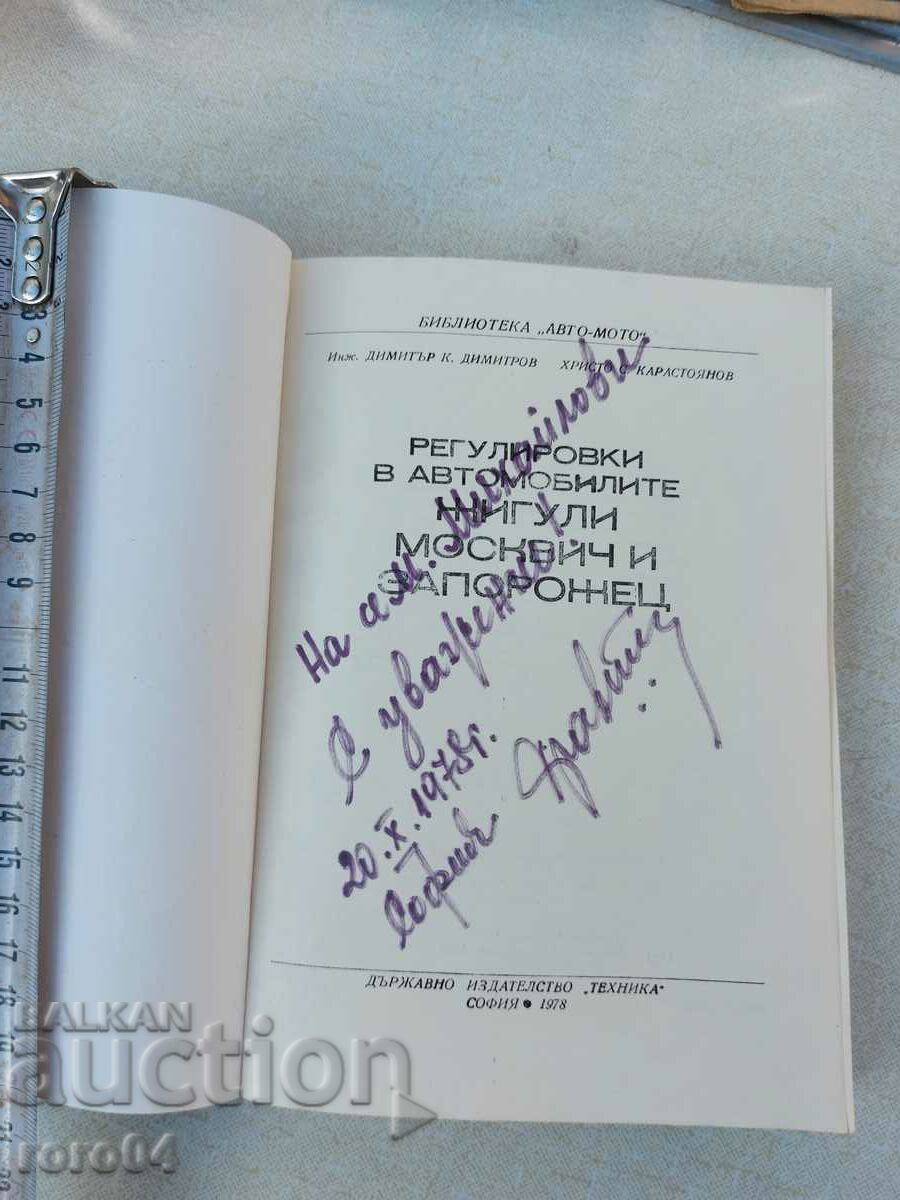 БИБЛИОТЕКА „АВТО-МОТО“
Инж. ДИМИТЪР К. ДИМИТРОВ ХРИСТО С. КАРАСТОЯНОВ
РЕГУЛИРОВКИ
В АВТОМОБИЛИТЕ
ЖИГУЛИ
МОСКВИЧ И
ЗАПОРОЖЕЦ
На сем. Михайлови
С уважение!
20.X.1978г.
София
ДЪРЖАВНО ИЗДАТЕЛСТВО „ТЕХНИКА“
СОФИЯ • 1978
BALKAN
auction
roro04
3
4
5
6
7
8
9
11
12
13
14
15
16
17
18